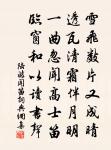 雪飛數片又成晴
透瓦清霜伴月明
一曲忽聞高士笛
臨窗和以讀書聲
陸游聞笛詞典網集